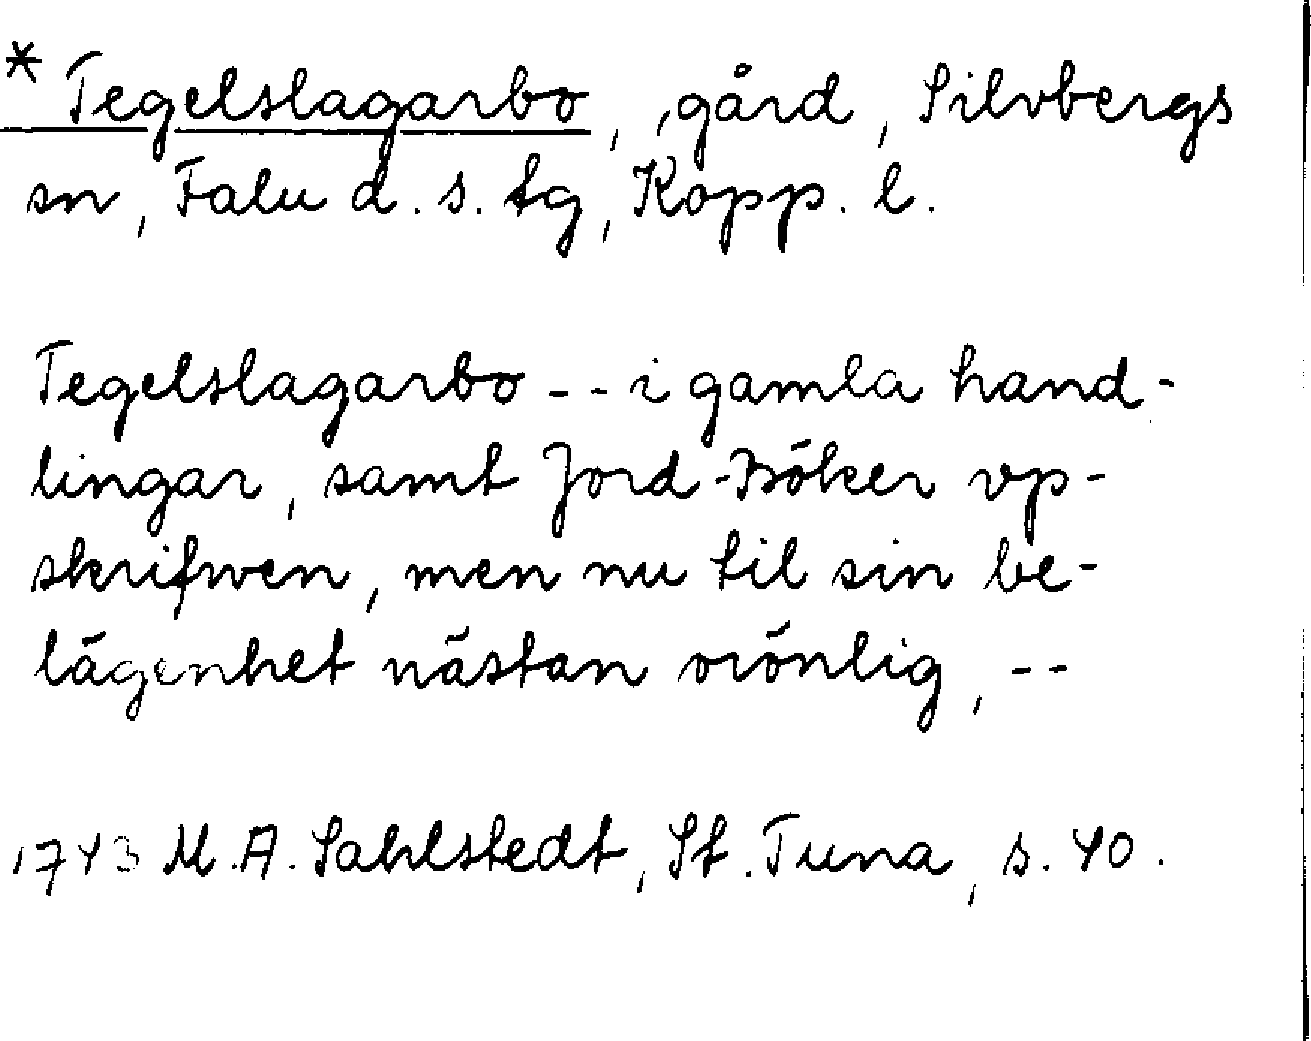 * Tegelslagarbo, gård, Silvbergs
sn, Falu d. s. tg, Kopp. l.
Tegelslagarbo -- i gamla hand-
lingar, samt Jord-Böker vp-
skrifwen, men nu til sin be-
lägenhet nästan orönlig, --
1743 M.A. Sahlstedt, St. Tuna, s. 40.